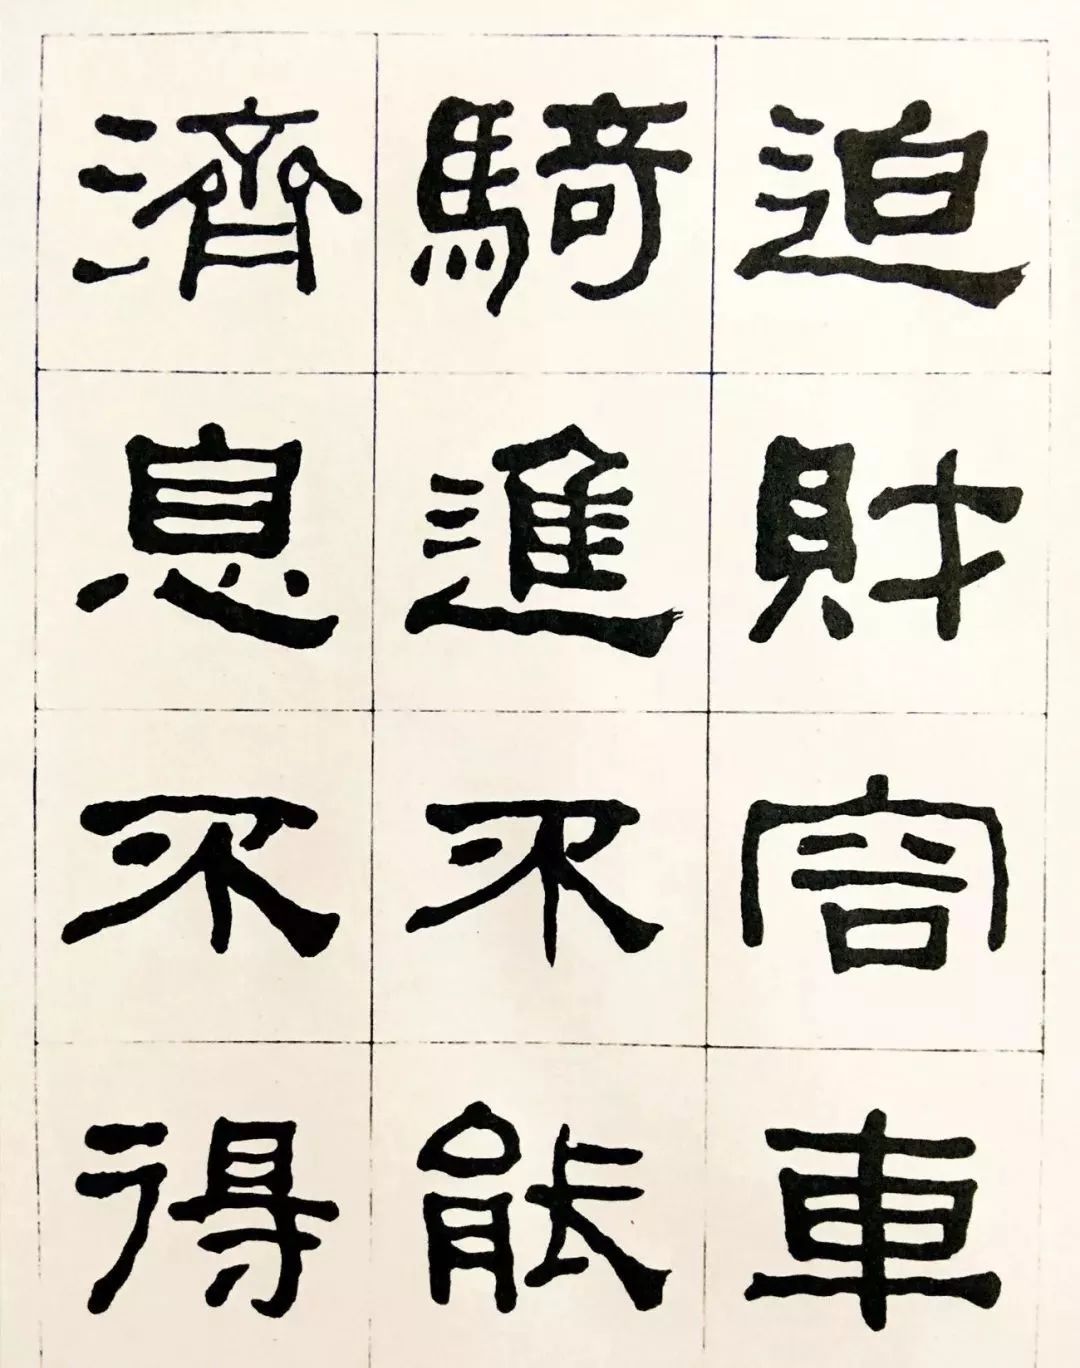 迫財容車
騎進不能
濟息不得